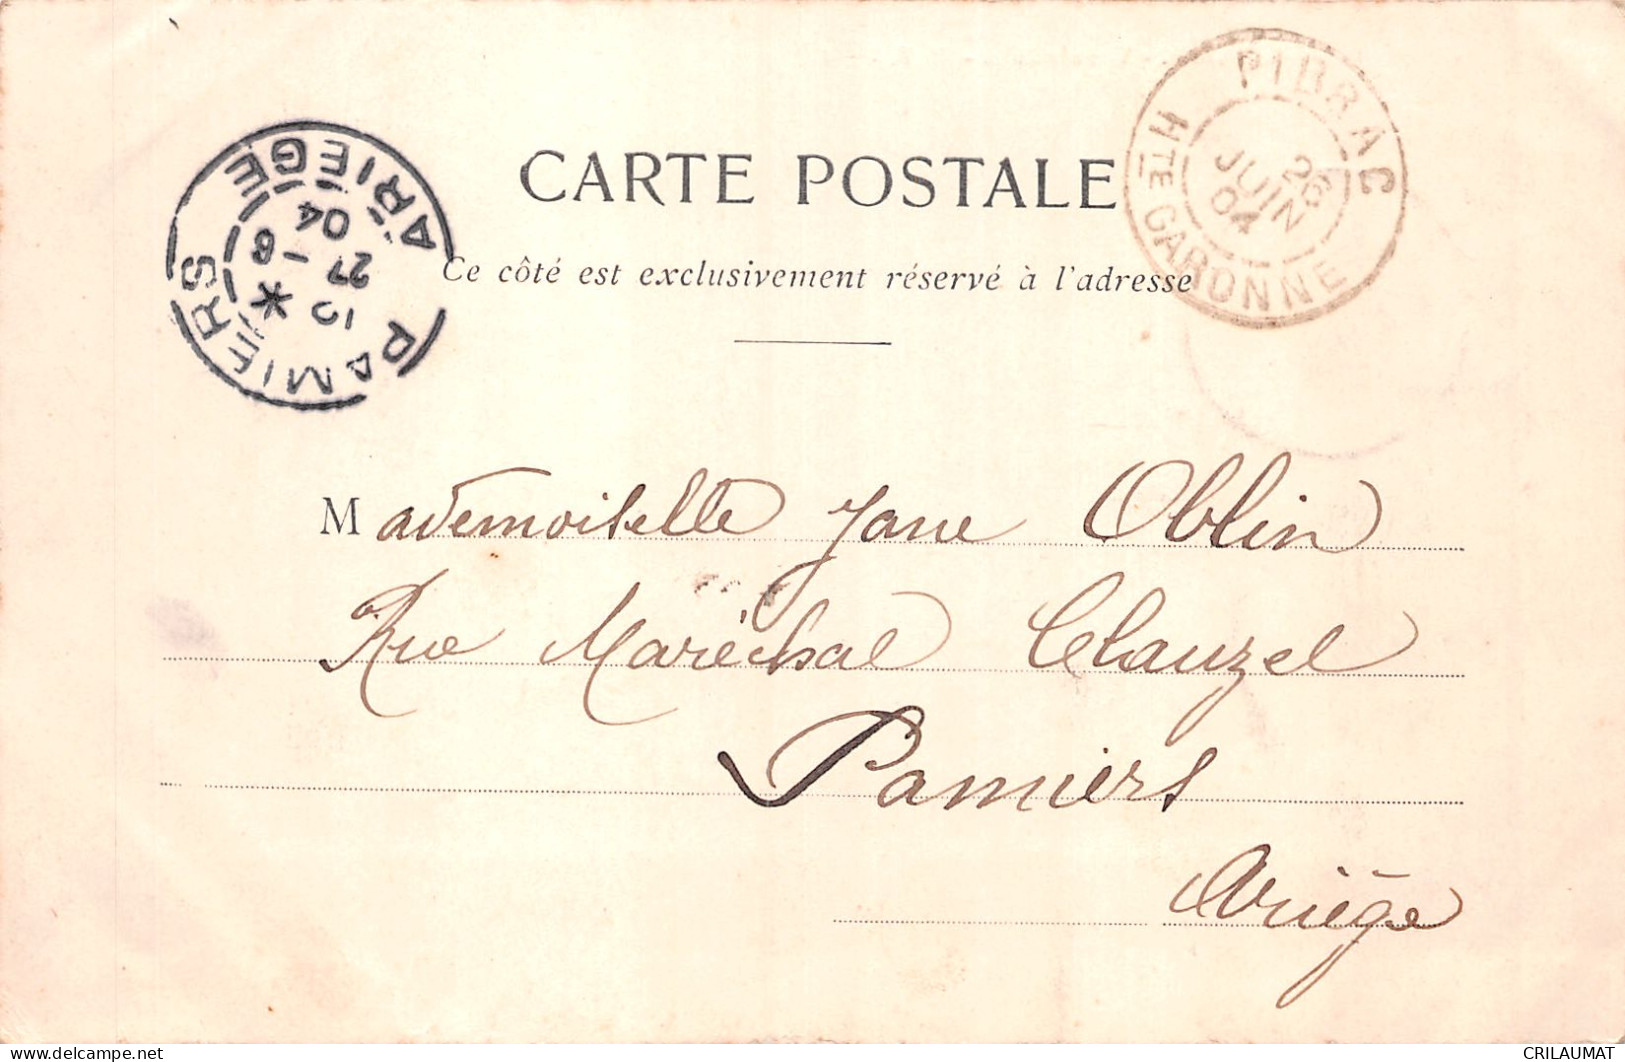 PIBRAC
26
JUIN
04
HTE GARONNE
PAMIERS
10 *
27 -6
04
ARIEGE
CARTE POSTALE
Ce côté est exclusivement réservé à l'adresse
Mademoiselle Jane Oblin
Rue Maréchal Clauzel
Pamiers
Ariège
CRILAUMAT